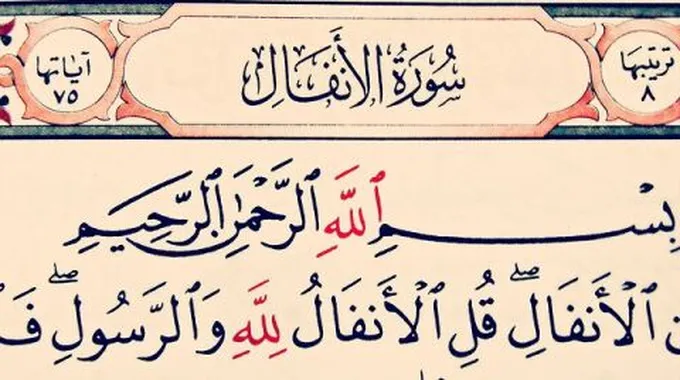 ترتيبها
٨
سُورَةُ الأَنفَالِ
آياتها
٧٥
بِسْمِ ٱللَّهِ ٱلرَّحْمَٰنِ ٱلرَّحِيمِ
ٱلْأَنفَالِۖ قُلِ ٱلْأَنفَالُ لِلَّهِ وَٱلرَّسُولِۖ